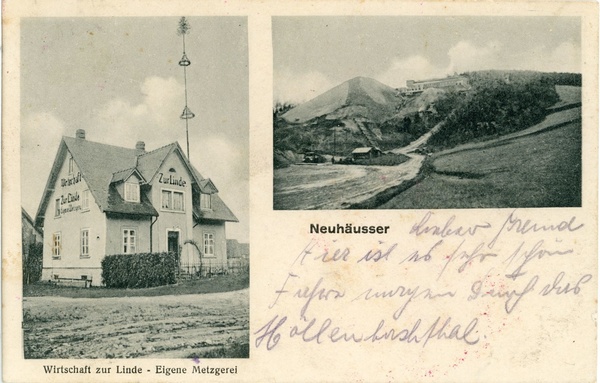 Wirtschaft
Zur Linde
Zur Linde
Neuhäusser
Lieber Freund
Hier ist es sehr schön
Fahre morgen durch das
Höllenbachthal.
Wirtschaft zur Linde - Eigene Metzgerei